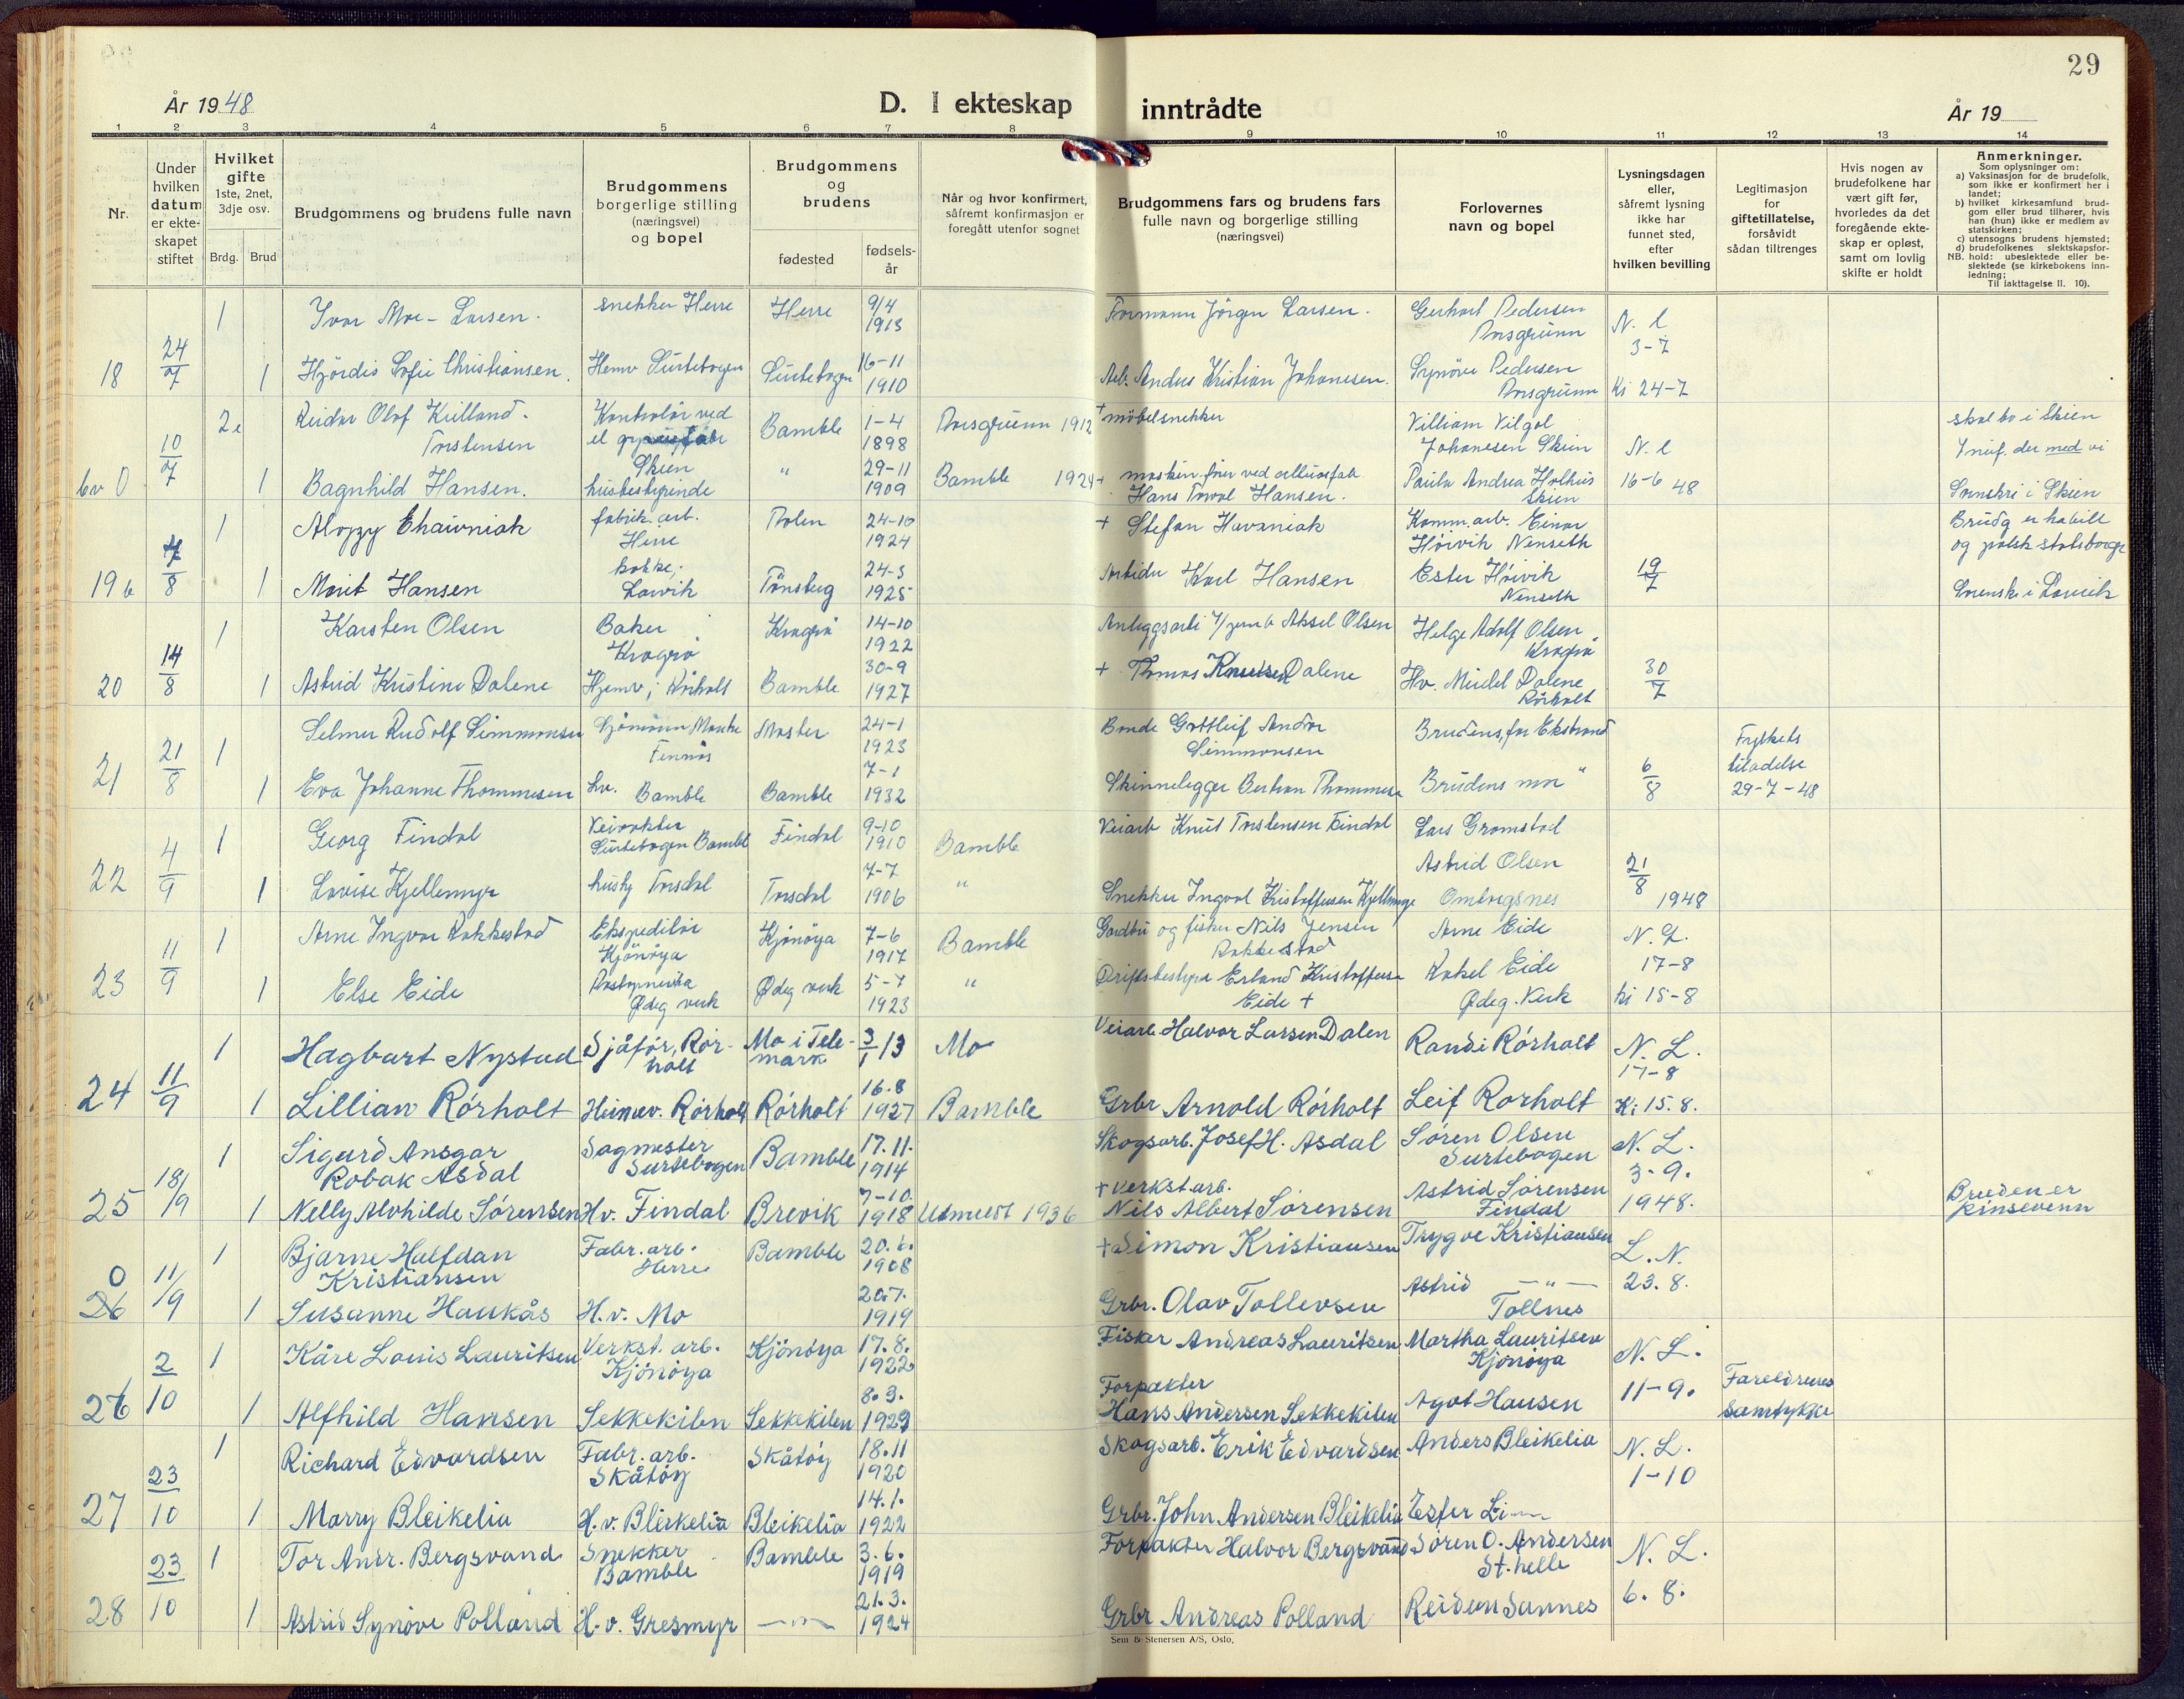 29
År 1948
D. I ekteskap inntrådte
År 19
1 2 3 4 5 6 7 8 9 10 11 12 13 14
Nr.
Under hvilken datum er ekte-skapet stiftet
Hvilket gifte
1ste, 2net, 3dje osv.
Brdg. Brud
Brudgommens og brudens fulle navn
Brudgommens borgerlige stilling (næringsvei) og bopel
Brudgommens og brudens
fødested
fødsels-år
Når og hvor konfirmert, såfremt konfirmasjon er foregått utenfor sognet
Brudgommens fars og brudens fars fulle navn og borgerlige stilling (næringsvei)
Forlovernes navn og bopel
Lysningsdagen eller, såfremt lysning ikke har funnet sted, efter hvilken bevilling
Legitimasjon for giftetillatelse, forsåvidt sådan tiltrenges
Hvis nogen av brudefolkene har vært gift før, hvorledes da det foregående ekte-skap er opløst, samt om lovlig skifte er holdt
Anmerkninger.
Som oplysninger om:
a) Vaksinasjon for de brudefolk, som ikke er konfirmert her i landet;
b) hvilket kirkesamfund brud-gom eller brud tilhører, hvis han (hun) ikke er medlem av statskirken;
c) utensogns brudens hjemsted;
d) brudefolkenes slektskapsfor-
NB. hold: ubeslektede eller be-slektede (se kirkebokens inn-ledning;
Til iakttagelse II. 10).
1 Ivar Moe-Larsen. snekker Herre Herre 9/4 1913 Formann Jörgen Larsen. Gerhart Pedersen Porsgrunn N. l 3-7
18 24/7 1 Hjördis Sofie Christiansen. Hemv Surtebogen Surtebogen 16-11 1910 Arb. Anders Kristian Johanesen. Synöve Pedersen Porsgrunn Ki 24-7
2 Reidar Olaf Kielland Torstensen Kontrolör ved el Skien Bamble 1-4 1898 Porsgrunn 1912 + möbelsnekker Villiam Vilgal Johanesen Skien N. l skal bo i Skien
10/7 1 Ragnhild Hansen. husbestyrinde " 29-11 1909 Bamble 1924 + Hans Torval Hansen. Paula Andrea Holhus Skien 16-6 48 Skien
1 fabrik. arb. Herre Polen 24-10 1924 + Stefan Havaniak Komm. arb. Einar Höivik Nenseth og polsk statsborger
19 7/8 1 Marit Hansen kokke, Larvik Tönsberg 24-3 1925 Arbeider Karl Hansen Ester Höivik Nenseth 19/7 i Larvik
1 Karsten Olsen Baker Kragerö Kragerö 14-10 1922 Aksel Olsen Helge Adolf Olsen Kragerö
20 14/8 1 Astrid Kristine Dalene Hjemv; Rörholt Bamble 30-9 1927 + Thomas Knutsen Dalene Hv. Dalene Rörholt 30/7
1 Selmer Rudolf Simmonsen Sjömann Moster Moster 24-1 1923 Bonde Gottleif Andor Simmonsen Brudens far Ekstrand Fylkets tiladelse 29-7-48
21 21/8 1 Eva Johanne Thommesen hv. Bamble Bamble 7-1 1932 Skinnelegger Thommesen Brudens mor " 6/8
1 Georg Findal Veivokter Surtebogen Bamble Findal 9-10 1910 Bamble Veiarb Knut Torstensen Findal Lars Gromstad
22 4/9 1 Lovise Kjellemyr Torsdal Torsdal 7-7 1906 " Snekker Ingval Kristoffersen Astrid Olsen Omborgsnes 21/8 1948
1 Arne Ingvar Rakkestad Ekspeditör Kjönöya Kjönöya 7-6 1917 Bamble Gardbr og fisker Nils Jensen Rakkestad Arne Eide N. L. 17-8
23 11/9 1 Else Eide Ödeg verk Ödeg verk 5-7 1923 " Driftsbestyrer Erland Kristoffersen Eide + Rakel Eide Ödeg. Verk Ki 15-8
1 Hagbart Nystad Sjåför, Rör-holt Mo i Tele-mark 3/1 13 Mo Veiarb Halvor Larsen Dalen Randi Rörholt N. L. 17-8
24 11/9 1 Lillian Rörholt Heimev. Rörholt Rörholt 16.8 1927 Bamble Grbr Arnold Rörholt Leif Rorholt Ki 15.8.
1 Sigurd Ansgar Robak Asdal Sagmester Surtebogen Bamble 17.11. 1914 Skogsarb. Josef H. Asdal Søren Olsen Surtebogen N. L. 3-9.
25 18/9 1 Nelly Alvhilde Sørensen Hv. Findal Brevik 7-10. 1918 Utmeldt 1936 + Verkst.arb. Nils Albert Sørensen Astrid Sørensen Findal 1948. Bruden er pinsevenn
1 Bjarne Halfdan Kristiansen Fabr. arb. Herre Bamble 20.6. 1908 + Simon Kristiansen Trygve Kristiansen L. N.
0 26 11/9 1 Susanne Haukås H. v. Mo 20.7. 1919 Grbr. Olav Tollevsen Astrid —"— Tollnes 23. 8.
1 Kåre Louis Lauritsen Verkst. arb. Kjönöya Kjönöya 17.8. 1922 Fisker Andreas Lauritsen Martha Lauritsen Kjönöya N. L.
26 2/10 1 Alfhild Hansen Sekkekilen Sekkekilen 8.3. 1929 Forpakter Hans Andersen Sekkekilen Agot Hansen 11-9. Foreldrenes samtykke
1 Richard Edvardsen Fabr. arb. Skåtöy Skåtöy 18.11 1920 Skogsarb. Erik Edvardsen Anders Bleikelia N. L. 1-10
27 23/10 1 Marry Bleikelia H. v. Bleikelia Bleikelia 14.1. 1922 Grbr. John Andersen Bleikelia Ester
1 Tor Andr. Bergsvand Snekker Bamble Bamble 3.6. 1919 Forpakter Halvor Bergsvand Søren O. Andersen St.helle N. L.
28 23/10 1 Astrid Synöve Polland H. v. Gresmyr —"— 21.3. 1924 Grbr Andreas Polland Reidun Sannes 6. 8.
Sem & Stenersen A/S, Oslo.